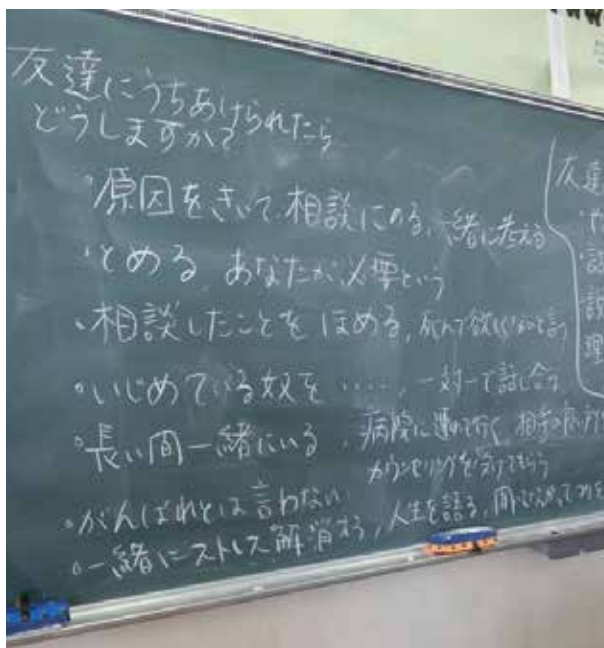 友達にうちあけられたら
どうしますか?
・原因をきいて相談にのる、一緒に考える
・とめる あなたが必要という
・相談したことを ほめる、死んで欲しくないと言う
・いじめている奴を ‥‥‥、一対一で話し合う
・長い間一緒にいる、病院に連れて行く、相手の
カウンセリングを受けてもらう
・がんばれとは言わない
・一緒にストレス解消する、人生を語る、
友達